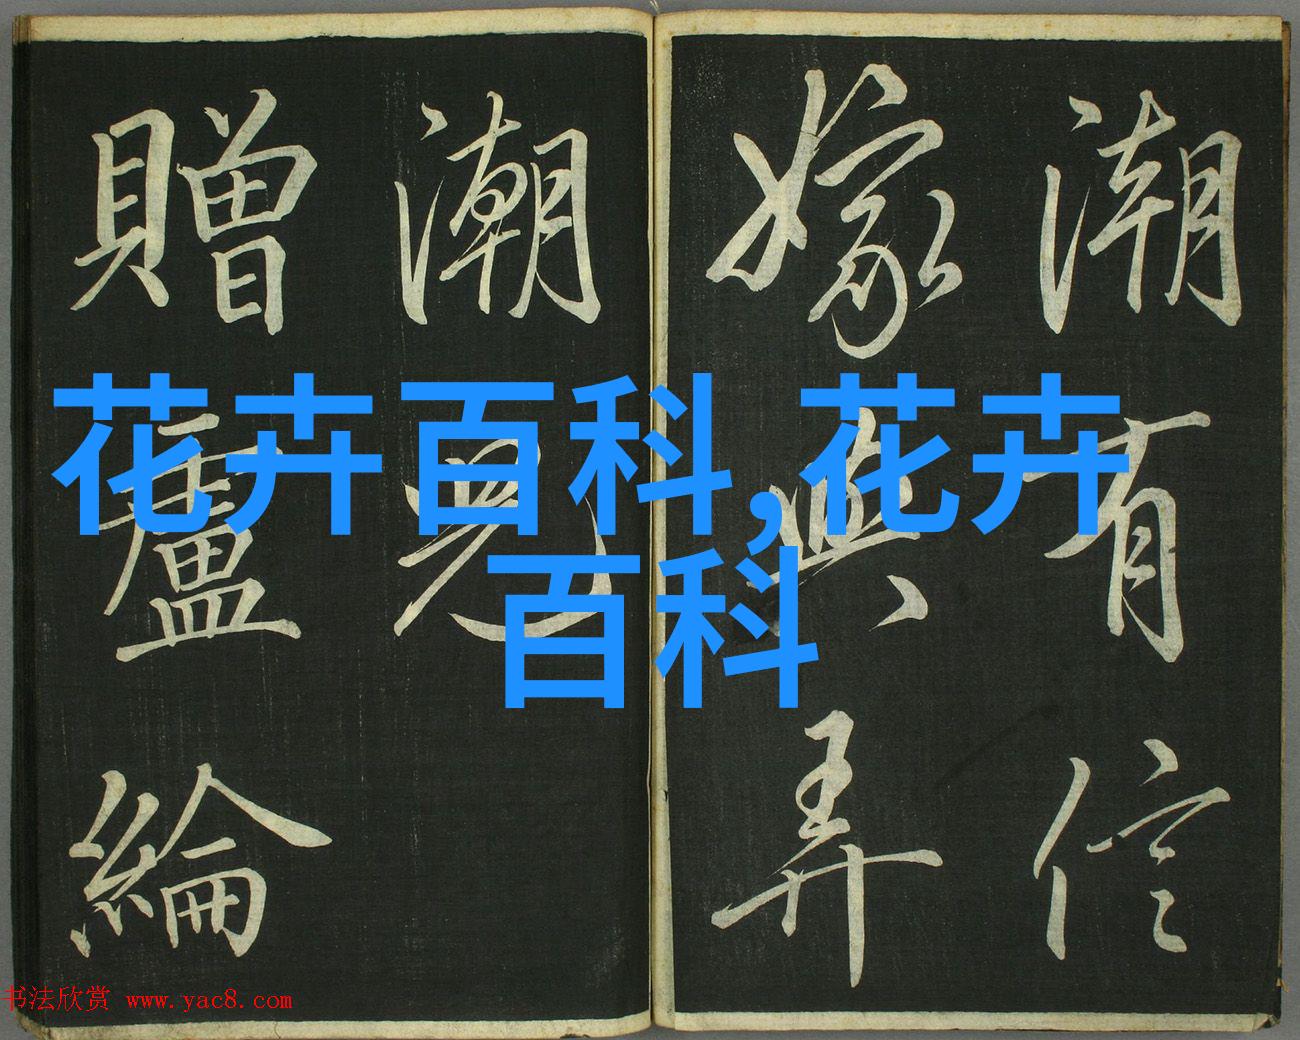 潮有信
嫁與弄
潮兒
贈盧綸
花卉百科,花卉
百科
书法欣赏 www.yac8.com